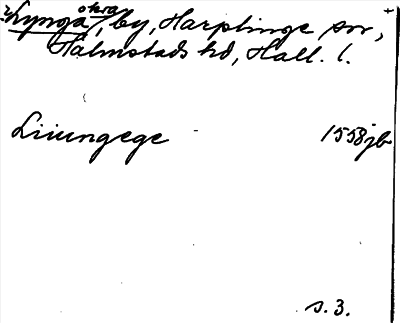 Lynga, okra, by, Harplinge sn,
Halmstads hd, Hall. l.
Liiungege 1558 jb
s. 3.